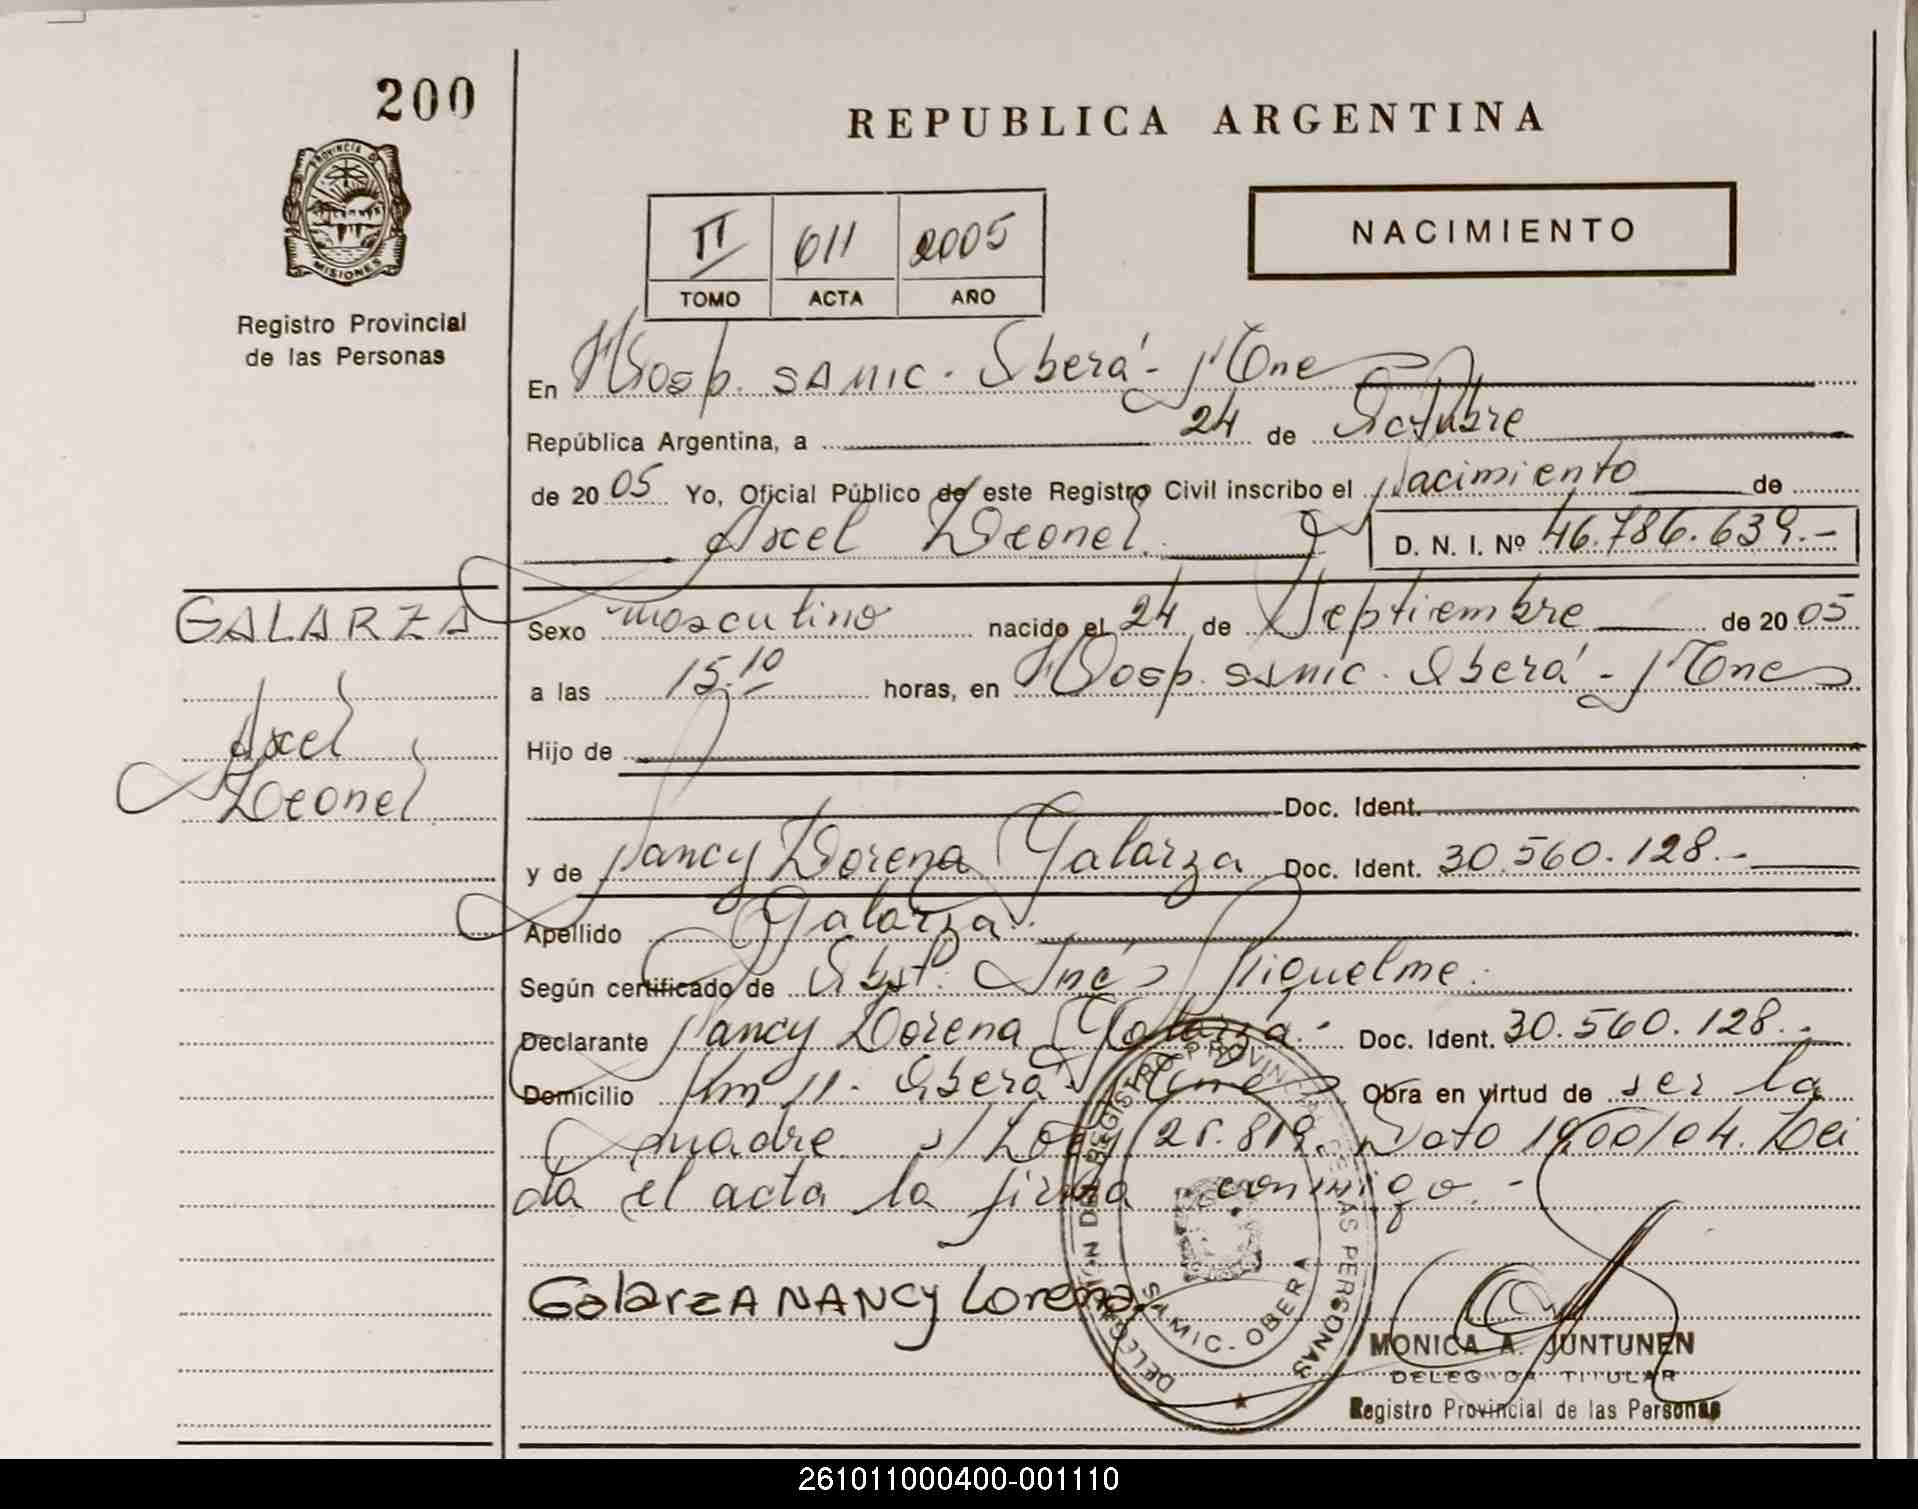 200
REPUBLICA ARGENTINA
PROVINCIA DE
MISIONES
Registro Provincial
de las Personas
II 611 2005
TOMO ACTA AÑO
NACIMIENTO
En Hosp. SAMIC - Oberá - Mnes
República Argentina, a 24 de Octubre
de 2005 Yo, Oficial Público de este Registro Civil inscribo el Nacimiento de
Axel Leonel. D. N. I. Nº 46.786.639.-
GALARZA
Axel
Leonel
Sexo masculino nacido el 24 de Septiembre de 2005
a las 15.10 horas, en Hosp. SAMIC - Oberá - Mnes
Hijo de
Doc. Ident.
y de Nancy Lorena Galarza Doc. Ident. 30.560.128.-
Apellido Galarza.
Según certificado de Obst. Inés Riquelme.
Declarante Nancy Lorena Galarza.- Doc. Ident. 30.560.128.-
Domicilio Km 11 - Oberá - Mnes Obra en virtud de ser la
madre s/ Ley 25.819. Dcto 1900/04. Lei
da el acta la firma conmigo.-
GalarzA NANCy Lorena
DELEGACION DEL REGISTRO PROVINCIAL DE LAS PERSONAS
SAMIC - OBERA
MONICA A. JUNTUNEN
DELEGADA TITULAR
Registro Provincial de las Personas
261011000400-001110